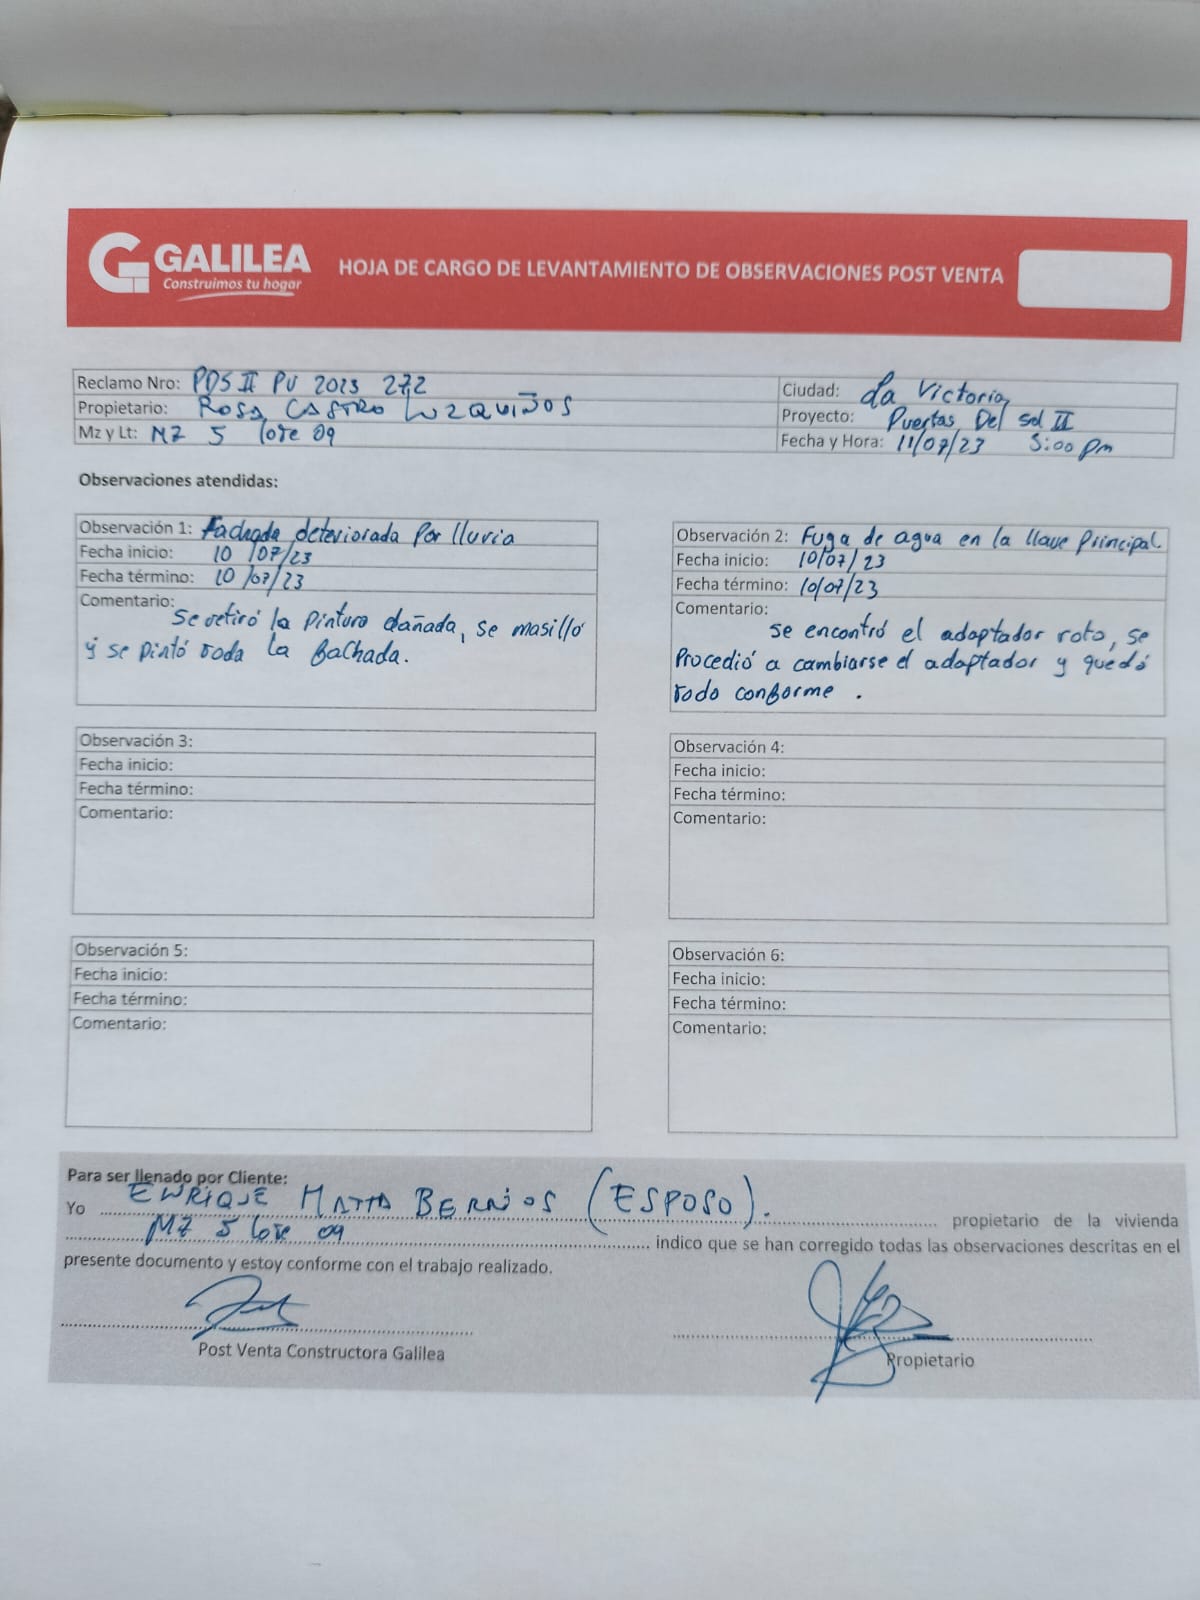 GALILEA
Construimos tu hogar
HOJA DE CARGO DE LEVANTAMIENTO DE OBSERVACIONES POST VENTA
Reclamo Nro: PDS II PV 2023 272
Propietario: ROSA CASTRO LUZQUIÑOS
Mz y Lt: MZ 5 lote 09
Ciudad: La Victoria
Proyecto: Puertas Del Sol II
Fecha y Hora: 11/07/23 5:00 pm
Observaciones atendidas:
Observación 1: Fachada deteriorada por lluvia
Fecha inicio: 10/07/23
Fecha término: 10/07/23
Comentario:
Se retiró la pintura dañada, se masilló
y se pintó toda la fachada.
Observación 2: Fuga de agua en la llave principal.
Fecha inicio: 10/07/23
Fecha término: 10/07/23
Comentario:
se encontró el adaptador roto, se
Procedió a cambiarse el adaptador y quedó
todo conforme.
Observación 3:
Fecha inicio:
Fecha término:
Comentario:
Observación 4:
Fecha inicio:
Fecha término:
Comentario:
Observación 5:
Fecha inicio:
Fecha término:
Comentario:
Observación 6:
Fecha inicio:
Fecha término:
Comentario:
Para ser llenado por Cliente:
Yo ENRIQUE MATTA BERRIOS (ESPOSO). propietario de la vivienda
MZ 5 lote 09 indico que se han corregido todas las observaciones descritas en el
presente documento y estoy conforme con el trabajo realizado.
Post Venta Constructora Galilea
Propietario